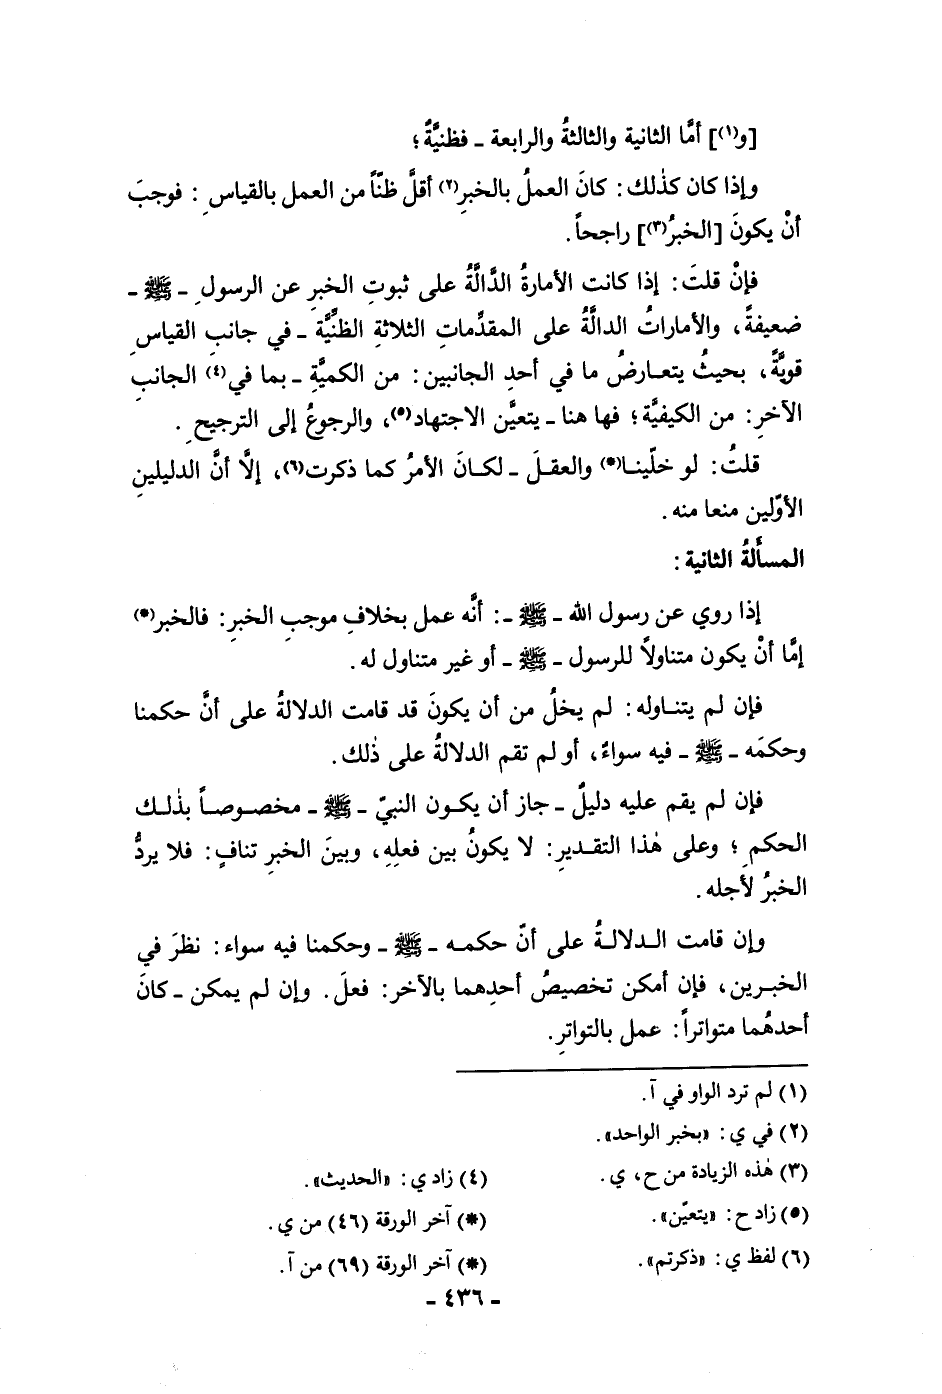 [و(١)] أمَّا الثانية والثالثةُ والرابعة ـ فظنيَّةٌ؛
وإذا كان كذٰلك: كانَ العملُ بالخبرِ(٢) أقلَّ ظنّاً من العمل بالقياسِ: فوجبَ
أنْ يكونَ [الخبرُ(٣)] راجحاً.
فإنْ قلتَ: إذا كانت الأمارةُ الدَّالَّةُ على ثبوتِ الخبرِ عن الرسولِ ـ ﷺ ـ
ضعيفةً، والأماراتُ الدالَّةُ على المقدِّماتِ الثلاثةِ الظنِّيَّة ـ في جانبِ القياسِ
قويَّةً، بحيثُ يتعـارضُ ما في أحدِ الجانبين: من الكميَّةِ ـ بما في(٤) الجانبِ
الآخرِ: من الكيفيَّة؛ فها هنا ـ يتعيَّن الاجتهاد(٥)، والرجوعُ إلى الترجيحِ.
قلتُ: لو خلّينـا(*) والعقلَ ـ لكـانَ الأمرُ كما ذكرت(٦)، إلَّا أنَّ الدليلينِ
الأوّلين منعا منه.
المسألةُ الثانية:
إذا روي عن رسول الله ـ ﷺ ـ: أنَّه عمل بخلافِ موجبِ الخبرِ: فالخبر(*)
إمَّا أنْ يكون متناولاً للرسول ـ ﷺ ـ أو غير متناول له.
فإن لم يتنـاوله: لم يخلُ من أن يكونَ قد قامت الدلالةُ على أنَّ حكمنا
وحكمَه ـ ﷺ ـ فيه سواءٌ، أو لم تقم الدلالةُ على ذٰلك.
فإن لم يقم عليه دليلٌ ـ جاز أن يكـون النبيّ ـ ﷺ ـ مخصـوصـاً بذٰلـك
الحكمِ؛ وعلى هٰذا التقـديرِ: لا يكونُ بين فعلِهِ، وبينَ الخبرِ تنافٍ: فلا يردُّ
الخبرُ لأجله.
وإن قامت الـدلالـةُ على أنّ حكمـه ـ ﷺ ـ وحكمنا فيه سواء: نظرَ في
الخبـرين، فإن أمكن تخصيصُ أحدِهما بالآخر: فعلَ. وإن لم يمكن ـ كانَ
أحدهُما متواتراً: عمل بالتواترِ.
(١) لم ترد الواو في آ.
(٢) في ي: «بخبر الواحد».
(٣) هٰذه الزيادة من ح، ي. (٤) زاد ي: «الحديث».
(٥) زاد ح: «يتعيّن». (*) آخر الورقة (٤٦) من ي.
(٦) لفظ ي: «ذكرتم». (*) آخر الورقة (٦٩) من آ.
ـ ٤٣٦ ـ